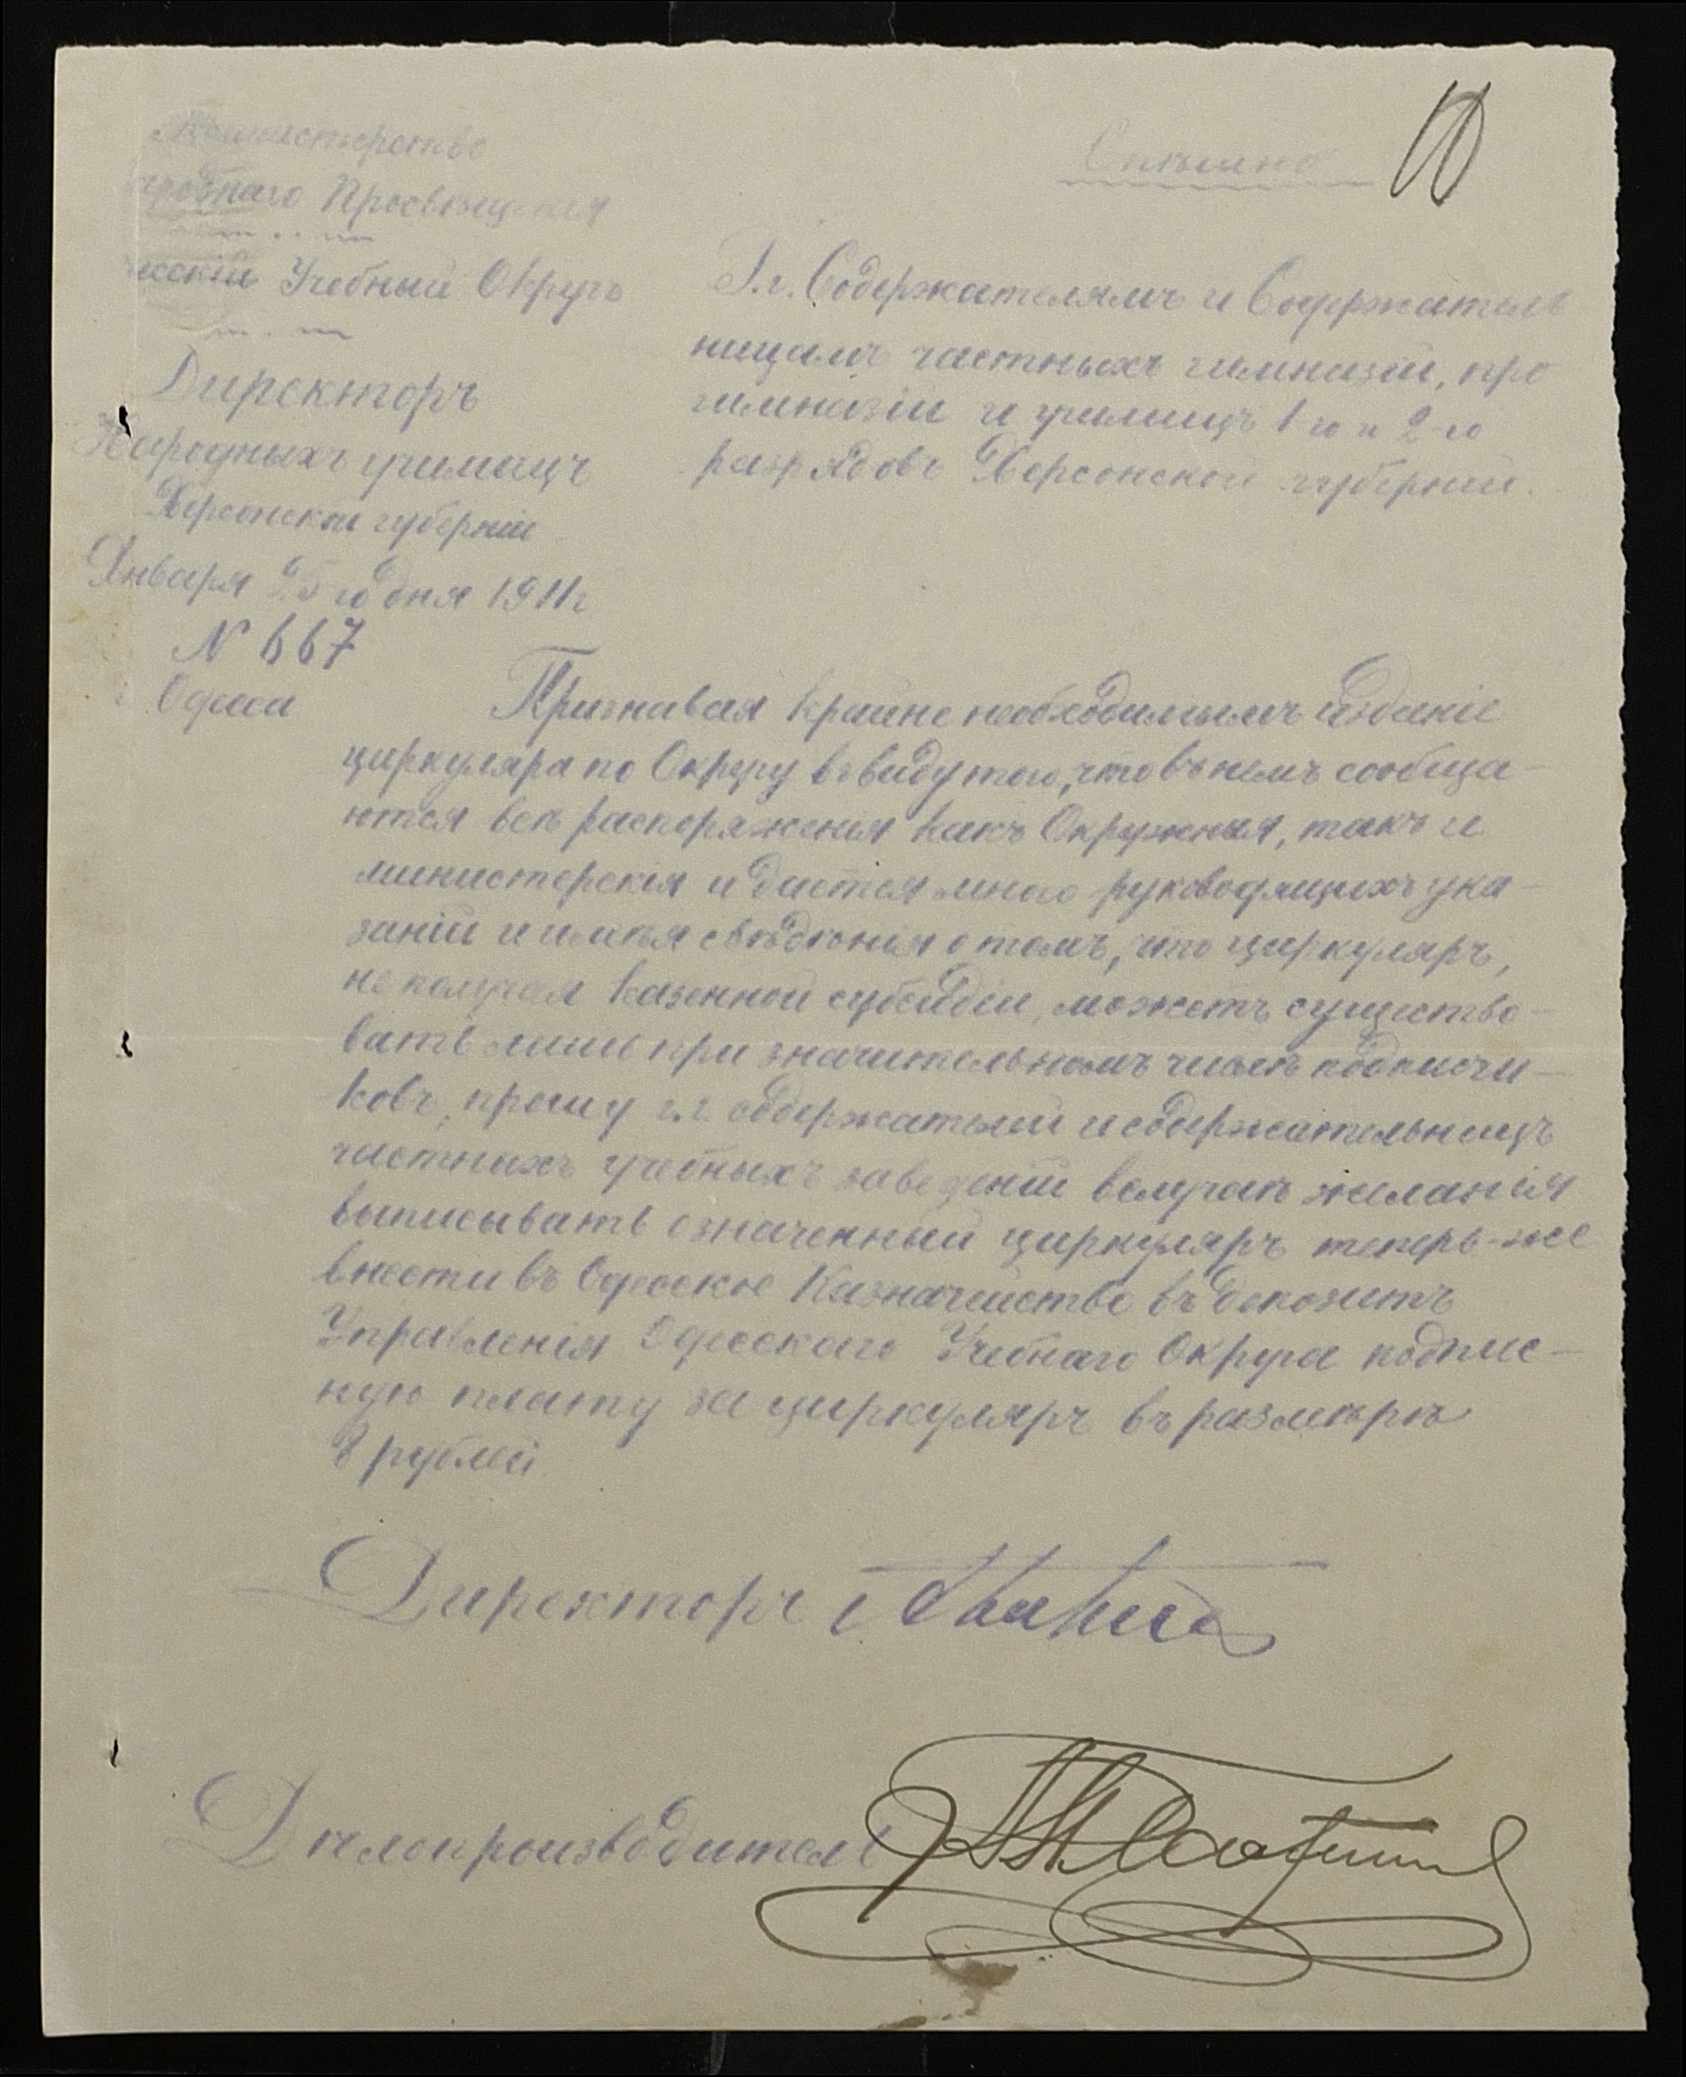 Министерство
Народнаго Просвѣщенія
Одесскій Учебный Округъ
Директоръ
Народныхъ училищъ
Херсонской губерніи
Января 25 го дня 1911 г
N 667
г. Одесса
Спѣшно
Г.г. Содержателямъ и Содержатель
ницамъ частныхъ гимназій, про
гимназій и училищъ 1 го и 2-го
разрядовъ Херсонской губерніи.
Признавая крайне необходимымъ изданіе
циркуляра по Округу въ виду того, что въ немъ сообща-
ются всѣ распоряженія какъ Окружныя, такъ и
министерскія и дается много руководящихъ ука-
заній и имѣя свѣдѣнія о томъ, что циркуляръ,
не получая казенной субсидіи, можетъ существо-
вать лишь при значительномъ числѣ подписчи-
ковъ, прошу г.г. содержателей и содержательницъ
частныхъ учебныхъ заведеній въ случаѣ желанія
выписывать означенный циркуляръ теперь-же
внести въ Одесское Казначейство въ депозитъ
Управленія Одесскаго Учебнаго Округа подпис-
ную плату за циркуляръ въ размѣрѣ
8 рублей.
Директоръ
Дѣлопроизводитель